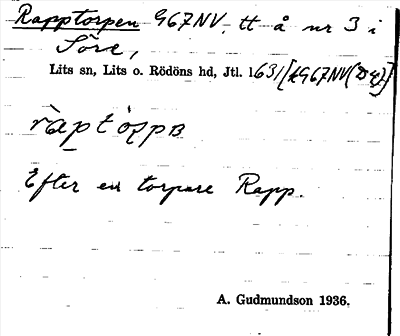 Rapptorpen 967NV, tt å nr 3 i
Söre,
Lits sn, Lits o. Rödöns hd, Jtl.
Efter en torpare Rapp.
A. Gudmundson 1936.